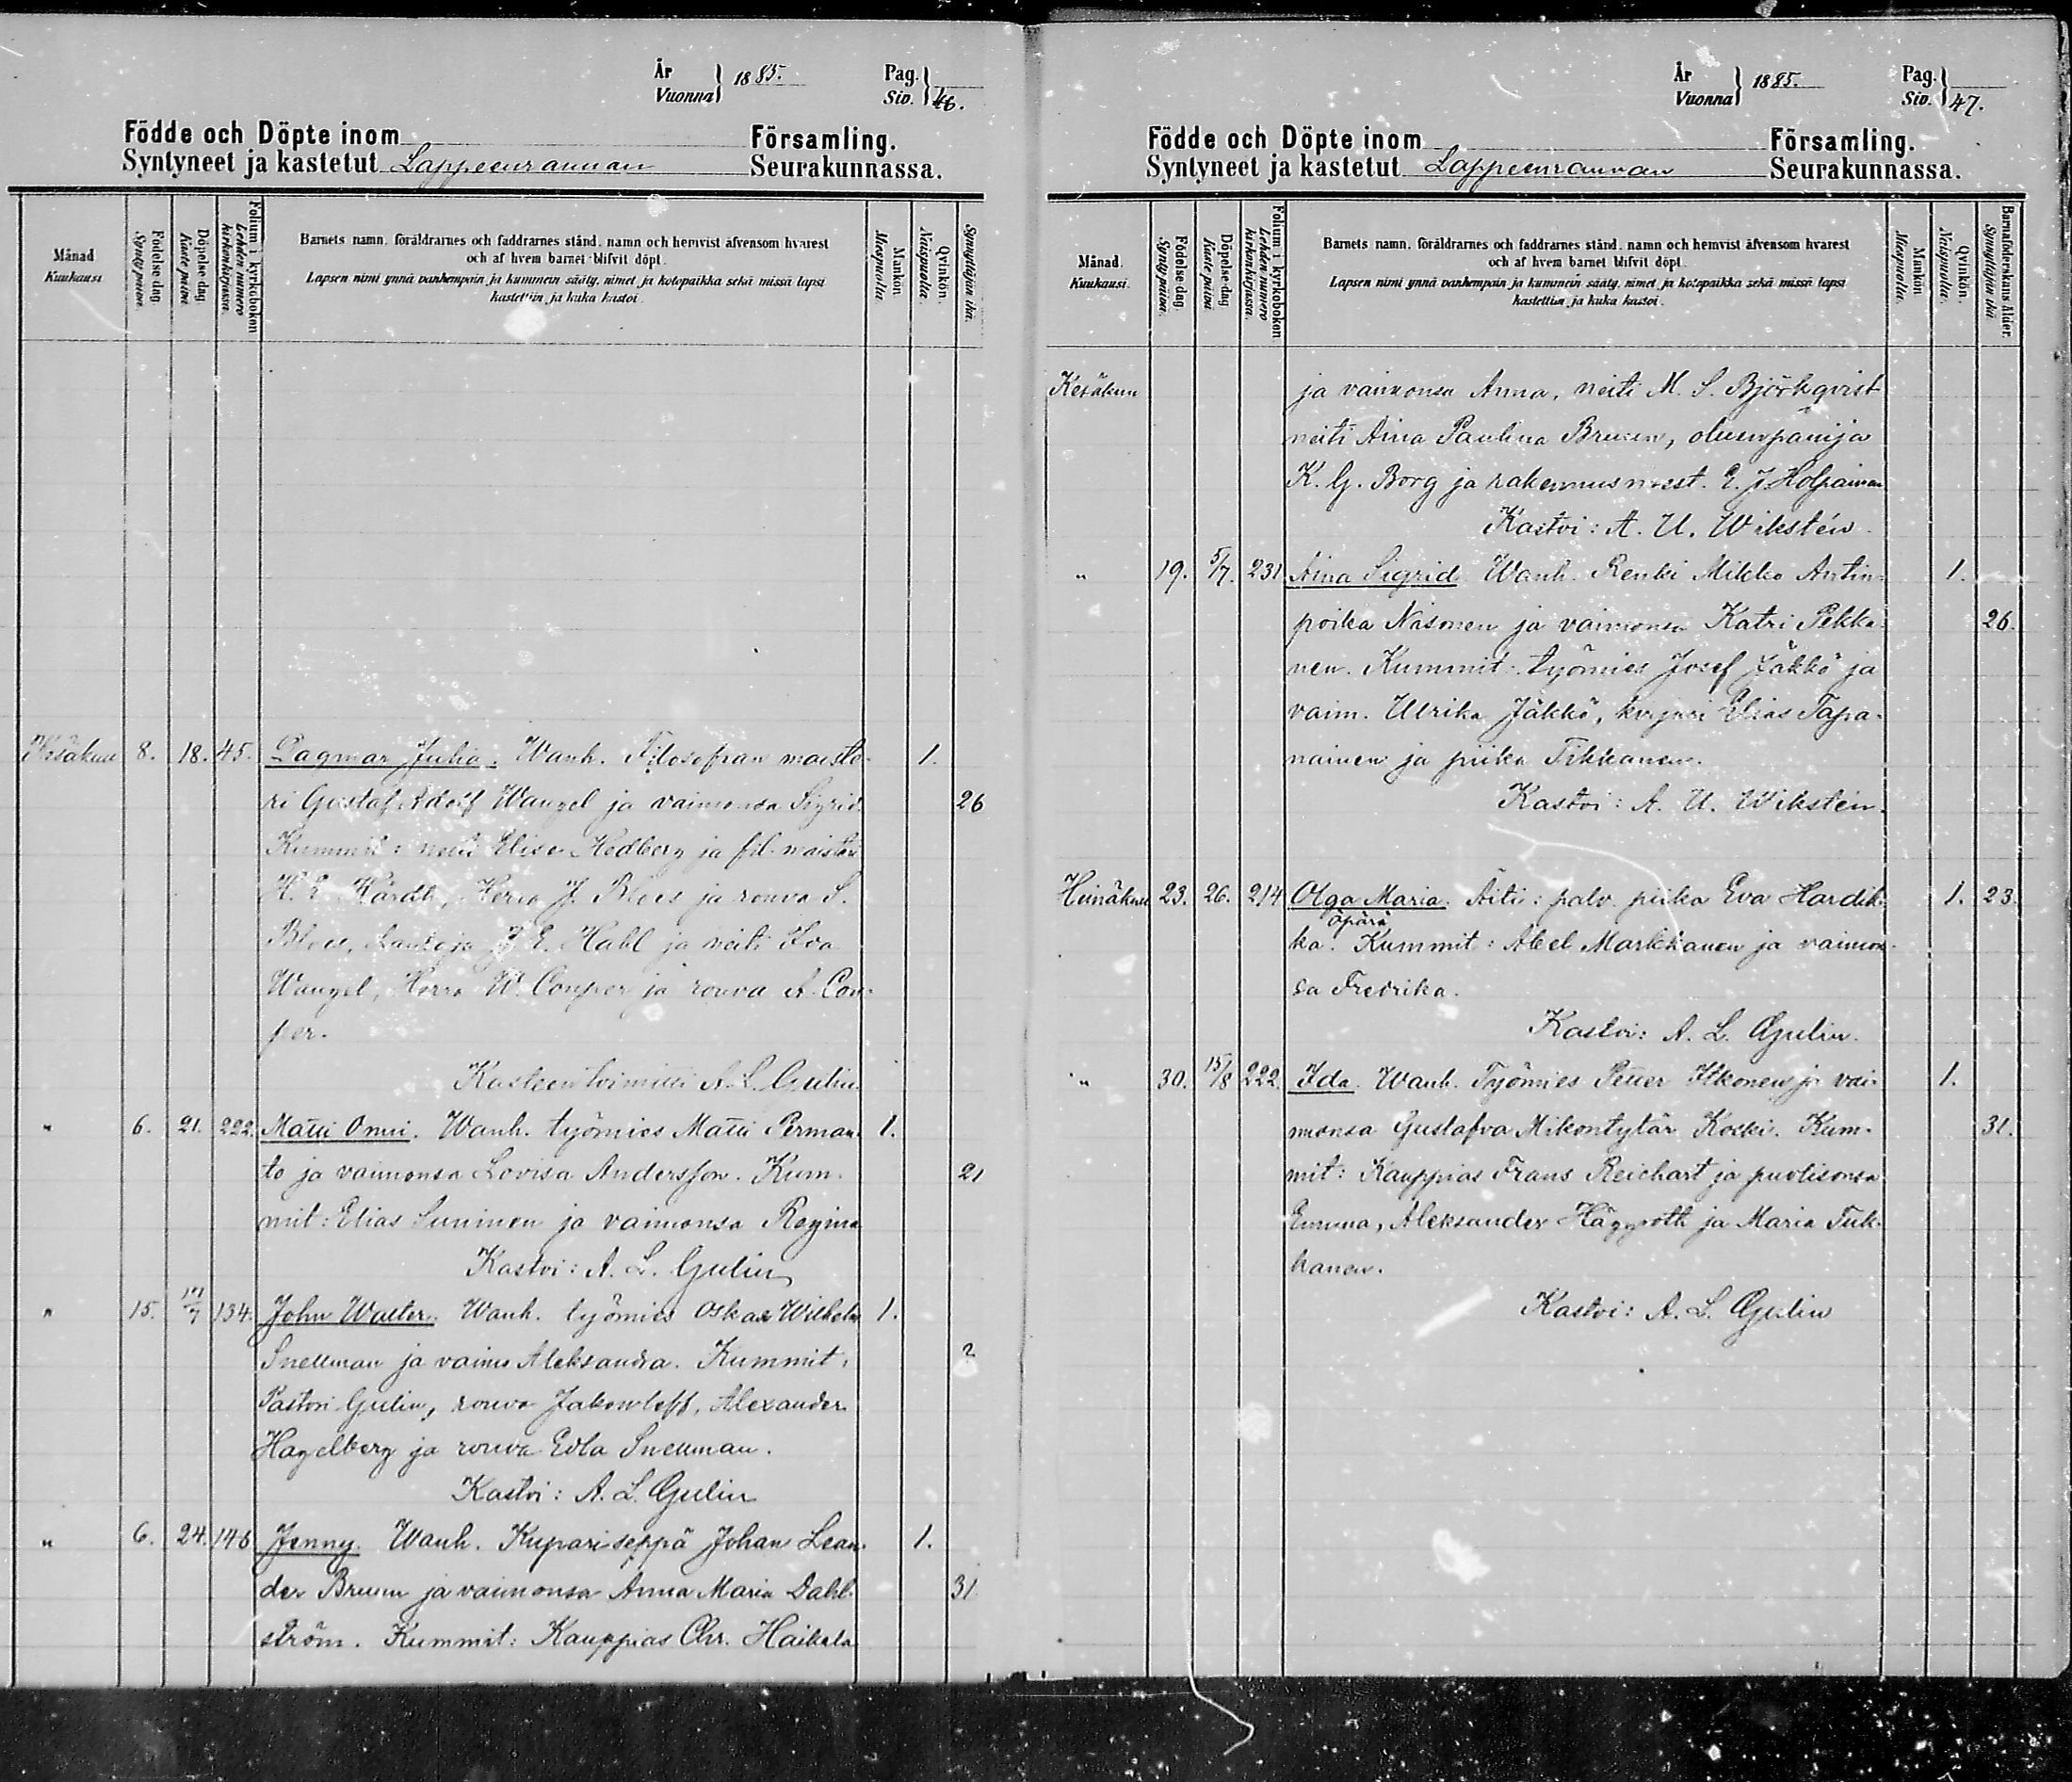 År
Vuonna } 1885.
Pag.
Siv. } 46.
Födde och Döpte inom Församling.
Syntyneet ja kastetut Lappeenrannan Seurakunnassa.
Månad. Kuukausi.
Födelse-dag. Syntypäivä.
Döpelse-dag. Kaste päivä.
Folium i kyrkoboken Lehden numero kirkonkirjassa.
Barnets namn, föräldrarnes och faddrarnes stånd, namn och hemvist äfvensom hvarest
och af hvem barnet blifvit döpt.
Lapsen nimi ynnä vanhempain ja kummein sääty, nimet ja kotopaikka sekä missä lapsi
kastettiin ja kuka kastoi.
Mankön. Miespuolia.
Qvinkön. Naispuolia.
Synnyttäjän ikä.
Kesäkuu 8. 18. 45. Dagmar Julia. Wanh. Filosofian maiste- 1.
ri Gustaf Adolf Wangel ja vaimonsa Sigrid. 26
Kummit: neiti Elise Hedberg ja fil. maisteri
H. E. Kärdh, Herra J. ja rouva S.
J. E. Hahl ja neiti
Wangel, Herra W. Conper ja rouva A. Con-
per.
Kasteen toimitti A. L. Gulin.
" 6. 21. 222. Matti Onni. Wanh. työmies Matti Perman- 1.
to ja vaimonsa Lovisa Andersson. Kum- 21
mit: Elias Suninen ja vaimonsa Regina
Kastoi: A. L. Gulin
" 15. 134. John Walter. Wanh. työmies Oskar Wilhelm 1.
Snellman ja vaimo Aleksandra. Kummit: ?
Pastori Gulin, rouva Jakowleff, Alexander
Hagelberg ja rouva Edla Snellman.
Kastoi: A. L. Gulin
" 6. 24. 146 Jenny. Wanh. Kupariseppä Johan Lean- 1.
der Bruun ja vaimonsa Anna Maria Dahl- 31
ström. Kummit: Kauppias Chr. Haikala
År
Vuonna } 1885.
Pag.
Siv. } 47.
Födde och Döpte inom Församling.
Syntyneet ja kastetut Lappeenrannan Seurakunnassa.
Månad. Kuukausi.
Födelse-dag. Syntypäivä.
Döpelse-dag. Kaste päivä.
Folium i kyrkoboken Lehden numero kirkonkirjassa.
Barnets namn, föräldrarnes och faddrarnes stånd, namn och hemvist äfvensom hvarest
och af hvem barnet blifvit döpt.
Lapsen nimi ynnä vanhempain ja kummein sääty, nimet ja kotopaikka sekä missä lapsi
kastettiin ja kuka kastoi.
Mankön. Miespuolia.
Qvinkön. Naispuolia.
Barnaföderskans ålder. Synnyttäjän ikä.
Kesäkuu ja vaimonsa Anna, neiti M. S. Björkqvist
neiti Aina Paulina Bruun, oluenpanija
K. G. Borg ja rakennusmest. E. J. Holpainen
Kastoi: A. U. Wikstén.
" 19. 5/7. 231 Aina Sigrid. Wanh. Renki Mikko Antin- 1.
poika Näsonen ja vaimonsa Katri Pekka- 26.
nen. Kummit: työmies Josef Jäkkö ja
vaim. Ulrika Jäkkö, kirjuri Elias Tapa-
nainen ja piika Tikkanen.
Kastoi: A. U. Wikstén.
Heinäkuu 23. 26. 214 Olga Maria. Äiti: palv. piika Eva Hardik- 1. 23.
äpärä
ka. Kummit: Abel Markkanen ja vaimon-
sa Fredrika.
Kastoi: A. L. Gulin.
" 30. 15/8 222. Ida. Wanh. Työmies Petter Itkonen ja vai- 1.
monsa Gustafva Mikontytär Koski. Kum- 31.
mit: Kauppias Frans Reichart ja puolisonsa
Emma, Aleksander Häggroth ja Maria Tuk-
kanen.
Kastoi: A. L. Gulin